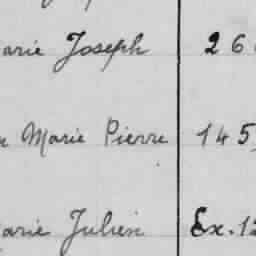 arie Joseph 26
Marie Pierre 145
arie Julien Ex. 12